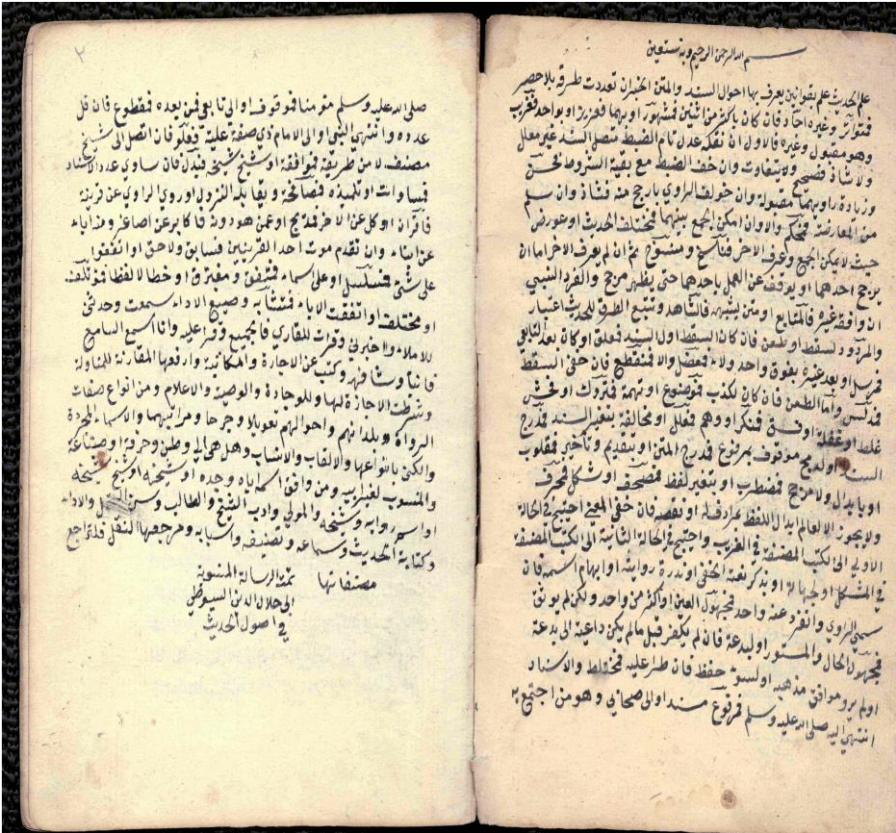 بسم الله الرحمن الرحيم وبه نستعين
علم الحديث علم بقوانين يعرف بها احوال السند والمتن الخبر ان تعددت طرقه بلا حصر
فمتواتر وغيره احاد فان كان باكثر من اثنين فمشهور او بهما فعزيز او بواحد فغريب
وهو مقبول وغيره فالاول ان نقله عدل تام الضبط متصل السند غير معلل
ولا شاذ فصحيح ويتفاوت وان خف الضبط مع بقية الشروط فحسن
وزيادة راويهما مقبولة وان خولف الراوي بارجح منه فشاذ وان سلم
من المعارضة فمحكم والا وان امكن الجمع بينهما فمختلف الحديث او عورض
حيث لا يمكن الجمع وعرف الاخر فناسخ ومنسوخ ثم ان لم يعرف الاخر اما ان
يرجح احدهما او يوقف عن العمل باحدهما حتى يظهر مرجح والفرد النسبي
ان وافقه غيره فالمتابع او متن يشبهه فالشاهد وتتبع الطرق للحديث اعتبار
والمردود لسقط او طعن فان كان السقط اول السند فمعلق او كان بعد التابعي
فمرسل او بعد غيره بفوق واحد ولاء فمعضل والا فمنقطع فان خفي السقط
فمدلس واما الطعن فان كان لكذب فموضوع او تهمة فمتروك او فحش
غلط او غفلة او فسق فمنكر او وهم فمعلل او مخالفة بتغير السند فمدرج
السند او لدمج موقوف بمرفوع فمدرج المتن او بتقديم وتأخير فمقلوب
او بابدال ولا مرجح فمضطرب او بتغير لفظ فمصحف او شكل فمحرف
ولا يجوز الا لعالم ابدال اللفظ بمرادف له او نقصه فان خفي المعنى احتيج في الحالة
الاولى الى الكتب المصنفة في الغريب واحتيج في الحالة الثانية الى الكتب المصنفة
في المشكل او لجهالة او بذكر نعته الخفي او ندرة روايته او ابهام اسمه فان
سمي الراوي وانفرد عنه واحد فمجهول العين او اكثر من واحد ولكن لم يوثق
فمجهول الحال والمستور او لبدعة فان لم يكفر قبل ما لم يكن داعية الى بدعة
او لم يرو موافق مذهبه او لسوء حفظ فان طرأ عليه فمختلط والاسناد
انتهى اليه صلى الله عليه وسلم فمرفوع مسند او الى صحابي وهو من اجتمع به
٢
صلى الله عليه وسلم مؤمنا فموقوف او الى تابعي فمن بعده فمقطوع فان قل
عدده وانتهى النبي او الى الامام ذي صفة علية فعلو فان اتصل الى شيخ
مصنف لا من طريقة فموافقة او شيخ شيخه فبدل فان ساوى عدد الاسناد
فمساوات او تلميذه فمصافحة ويقابله النزول او روى الراوي عن قرينة
فاقران او كل عن الاخر فمدبج او عمن هو دونه فاكابر عن اصاغر ومنه اباء
عن ابناء وان تقدم موت احد القرينين فسابق ولاحق او اتفقوا
على شئ فمسلسل او على اسماء فمتفق ومفترق او خطا لا لفظا فمؤتلف
او مختلف او اتفقت الاباء فمتشابه وصيغ الاداء سمعت وحدثني
للاملاء واخبرني وقرات للقاري فالجميع وقرا عليه وانا اسمع السامع
فانبأ وشافهه وكتب عن الاجازة والمكاتبة وارفعها المقارنة للمناولة
وشرطت الاجازة لها وللوجادة والوصية والاعلام ومن انواع صفات
الرواة وبلدانهم واحوالهم تعديلا وجرحا ومراتبهما والاسماء المجردة
والكنى بانواعها والالقاب والانساب وهل هي الى وطن وحرفة او صناعة
والمنسوب لغير ابيه ومن وافق اسمه اباه وجده او شيخه او شيخ شيخه
او اسم راويه وشيخه والمولى وادب الشيخ والطالب وسن التحمل والاداء
وكتابة الحديث وسماعه وتصنيفه واسبابه ومرجعها النقل فلتراجع
مصنفاتها
تمة الرسالة المنسوبة
الى جلال الدين السيوطي
في اصول الحديث